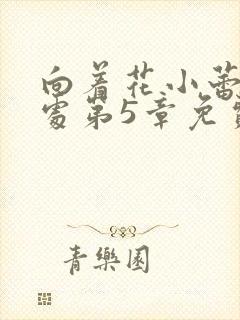 向着花小蕾
处第5章免费
青樂園